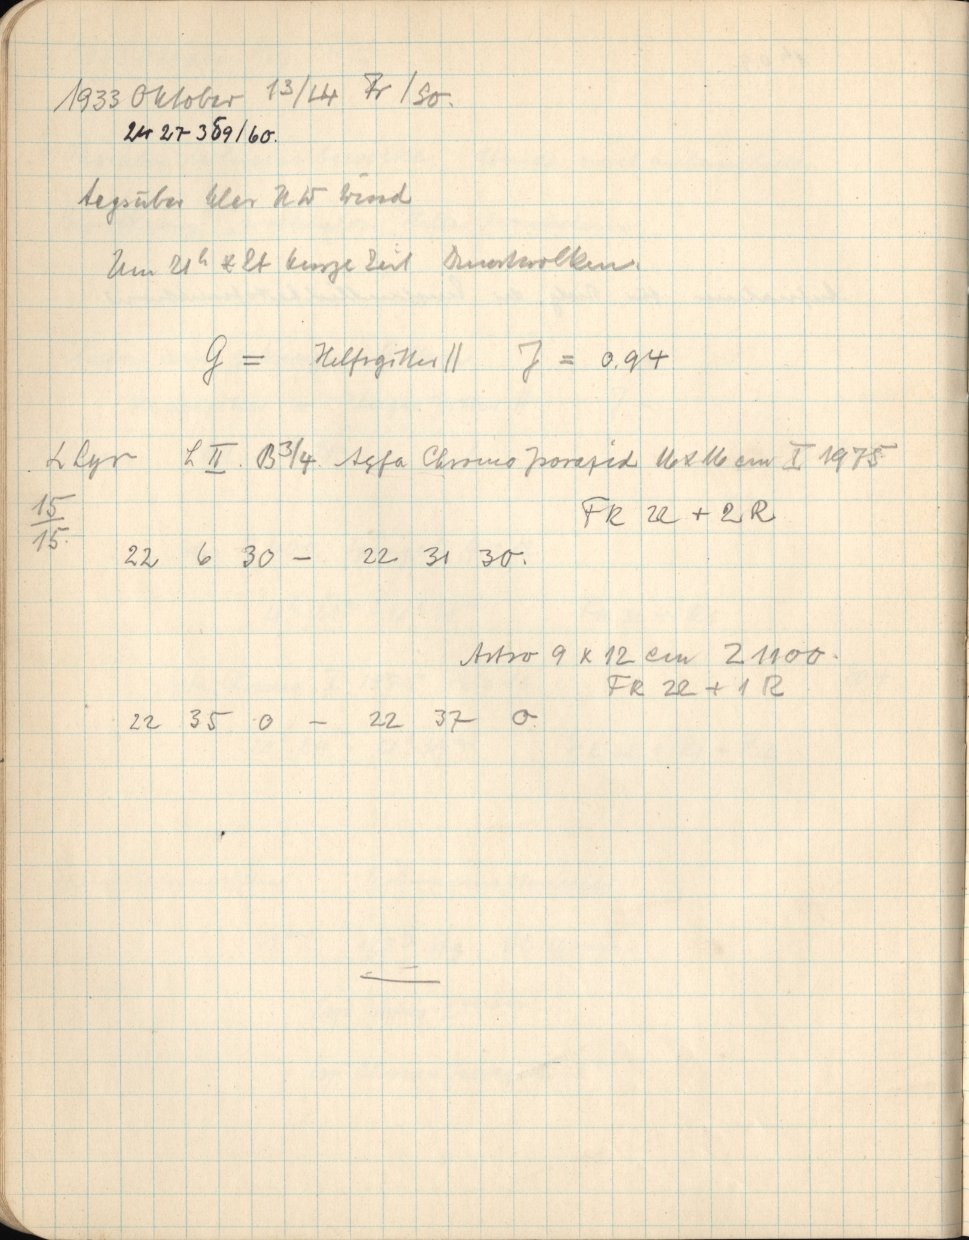 1933 Oktober 13/14 Fr/So.
24 27 359/60.
tagsüber klar NW Wind
Um 21h kurze Zeit Dunstwolken.
G = Hilfsgitter || J = 0.94
α Lyr L II. B 3/4. Agfa Chromo Isorapid 16 x 16 cm I 1975
15
15.
FR 22 + 2 R
22 6 30 – 22 31 30.
Astro 9 x 12 cm Z 1100.
FR 22 + 1 R
22 35 0 – 22 37 0.